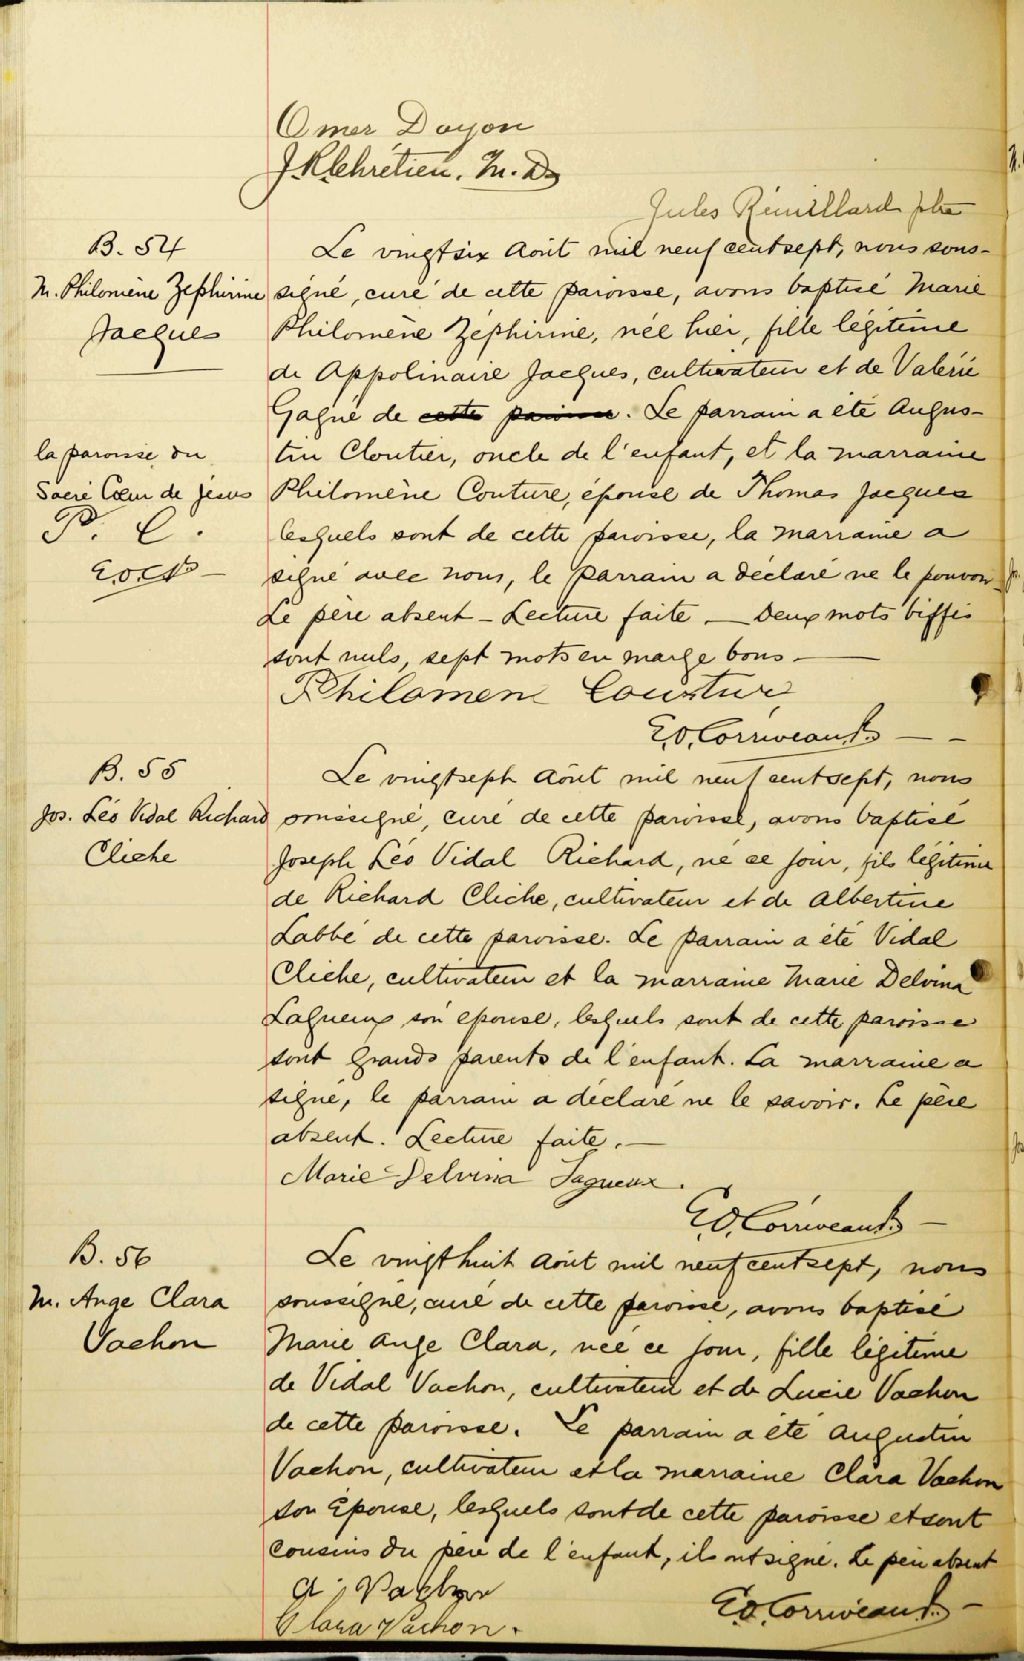 Omer Doyon
J.R. Chrétien. M.D.
Jules Rémillard ptre
B. 54
M. Philomène Zéphirine
Jacques
Le vingt six Août mil neuf cent sept, nous sous-
signé, curé de cette paroisse, avons baptisé Marie
Philomène Zéphirine, née hier, fille légitime
de Appolinaire Jacques, cultivateur et de Valérie
Gagné de cette paroisse. Le parrain a été Augus-
tin Cloutier, oncle de l'enfant, et la marraine
Philomène Couture, épouse de Thomas Jacques
lesquels sont de cette paroisse, la marraine a
signé avec nous, le parrain a déclaré ne le pouvoir.
Le père absent – Lecture faite. — Deux mots biffés
sont nuls, sept mots en marge bons —
la paroisse du
Sacré Cœur de Jésus
P. C.
E.O.C. Ptr
Philomene Couture
E.O. Corriveau Ptr — –
B. 55
Jos. Léo Vidal Richard
Cliche
Le vingt sept Août mil neuf cent sept, nous
soussigné, curé de cette paroisse, avons baptisé
Joseph Léo Vidal Richard, né ce jour, fils légitime
de Richard Cliche, cultivateur et de Albertine
Labbé de cette paroisse. Le parrain a été Vidal
Cliche, cultivateur et la marraine Marie Delvina
Lagueux son épouse, lesquels sont de cette paroisse
sont grands parents de l'enfant. La marraine a
signé, le parrain a déclaré ne le savoir. Le père
absent. Lecture faite. —
Marie-Delvina Lagueux.
E.O. Corriveau Ptr —
B. 56
M. Ange Clara
Vachon
Le vingt huit Août mil neuf cent sept, nous
soussigné, curé de cette paroisse, avons baptisé
Marie Ange Clara, née ce jour, fille légitime
de Vidal Vachon, cultivateur et de Lucie Vachon
de cette paroisse. Le parrain a été Augustin
Vachon, cultivateur et la marraine Clara Vachon
son Épouse, lesquels sont de cette paroisse et sont
cousins du père de l'enfant, ils ont signé. Le père absent
A. Vachon
Clara Vachon.
E.O. Corriveau Ptr —